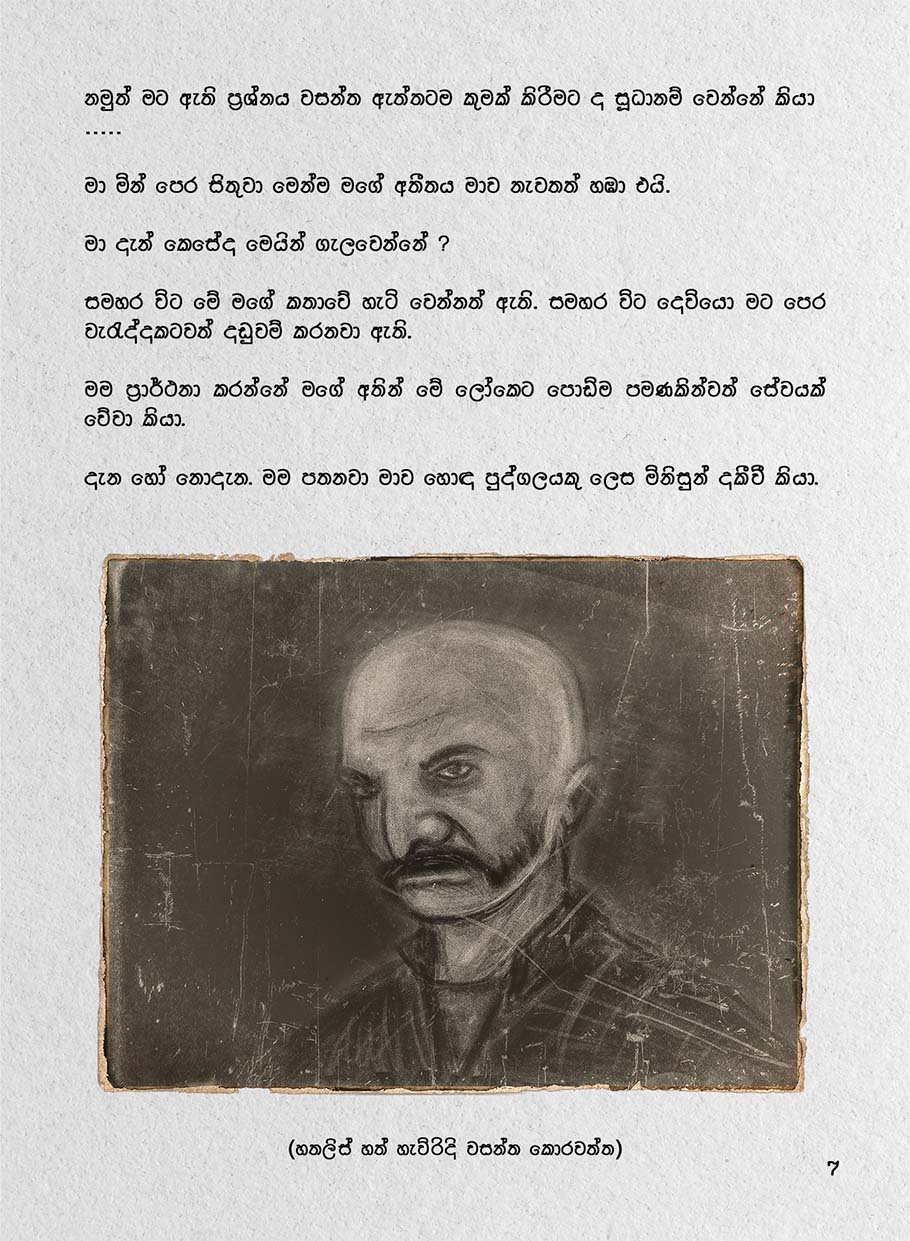 නමුත් මට ඇති ප්‍රශ්නය වසන්ත ඇත්තටම කුමක් කිරීමට ද සූධානම් වෙන්නේ කියා
.....
මා මින් පෙර සිතුවා මෙන්ම මගේ අතීතය මාව නැවතත් හඹා එයි.
මා දැන් කෙසේද මෙයින් ගැලවෙන්නේ ?
සමහර විට මේ මගේ කතාවේ හැටි වෙන්නත් ඇති. සමහර විට දෙවියො මට පෙර
වැරැද්දකටවත් දඩුවම් කරනවා ඇති.
මම ප්‍රාර්ථනා කරන්නේ මගේ අතින් මේ ලෝකෙට පොඩිම පමණකින්වත් සේවයක්
වේවා කියා.
දැන හෝ නොදැන. මම පතනවා මාව හොඳ පුද්ගලයකු ලෙස මිනිසුන් දකීවී කියා.
(හතලිස් හත් හැවිරිදි වසන්ත කොරවත්ත)
7